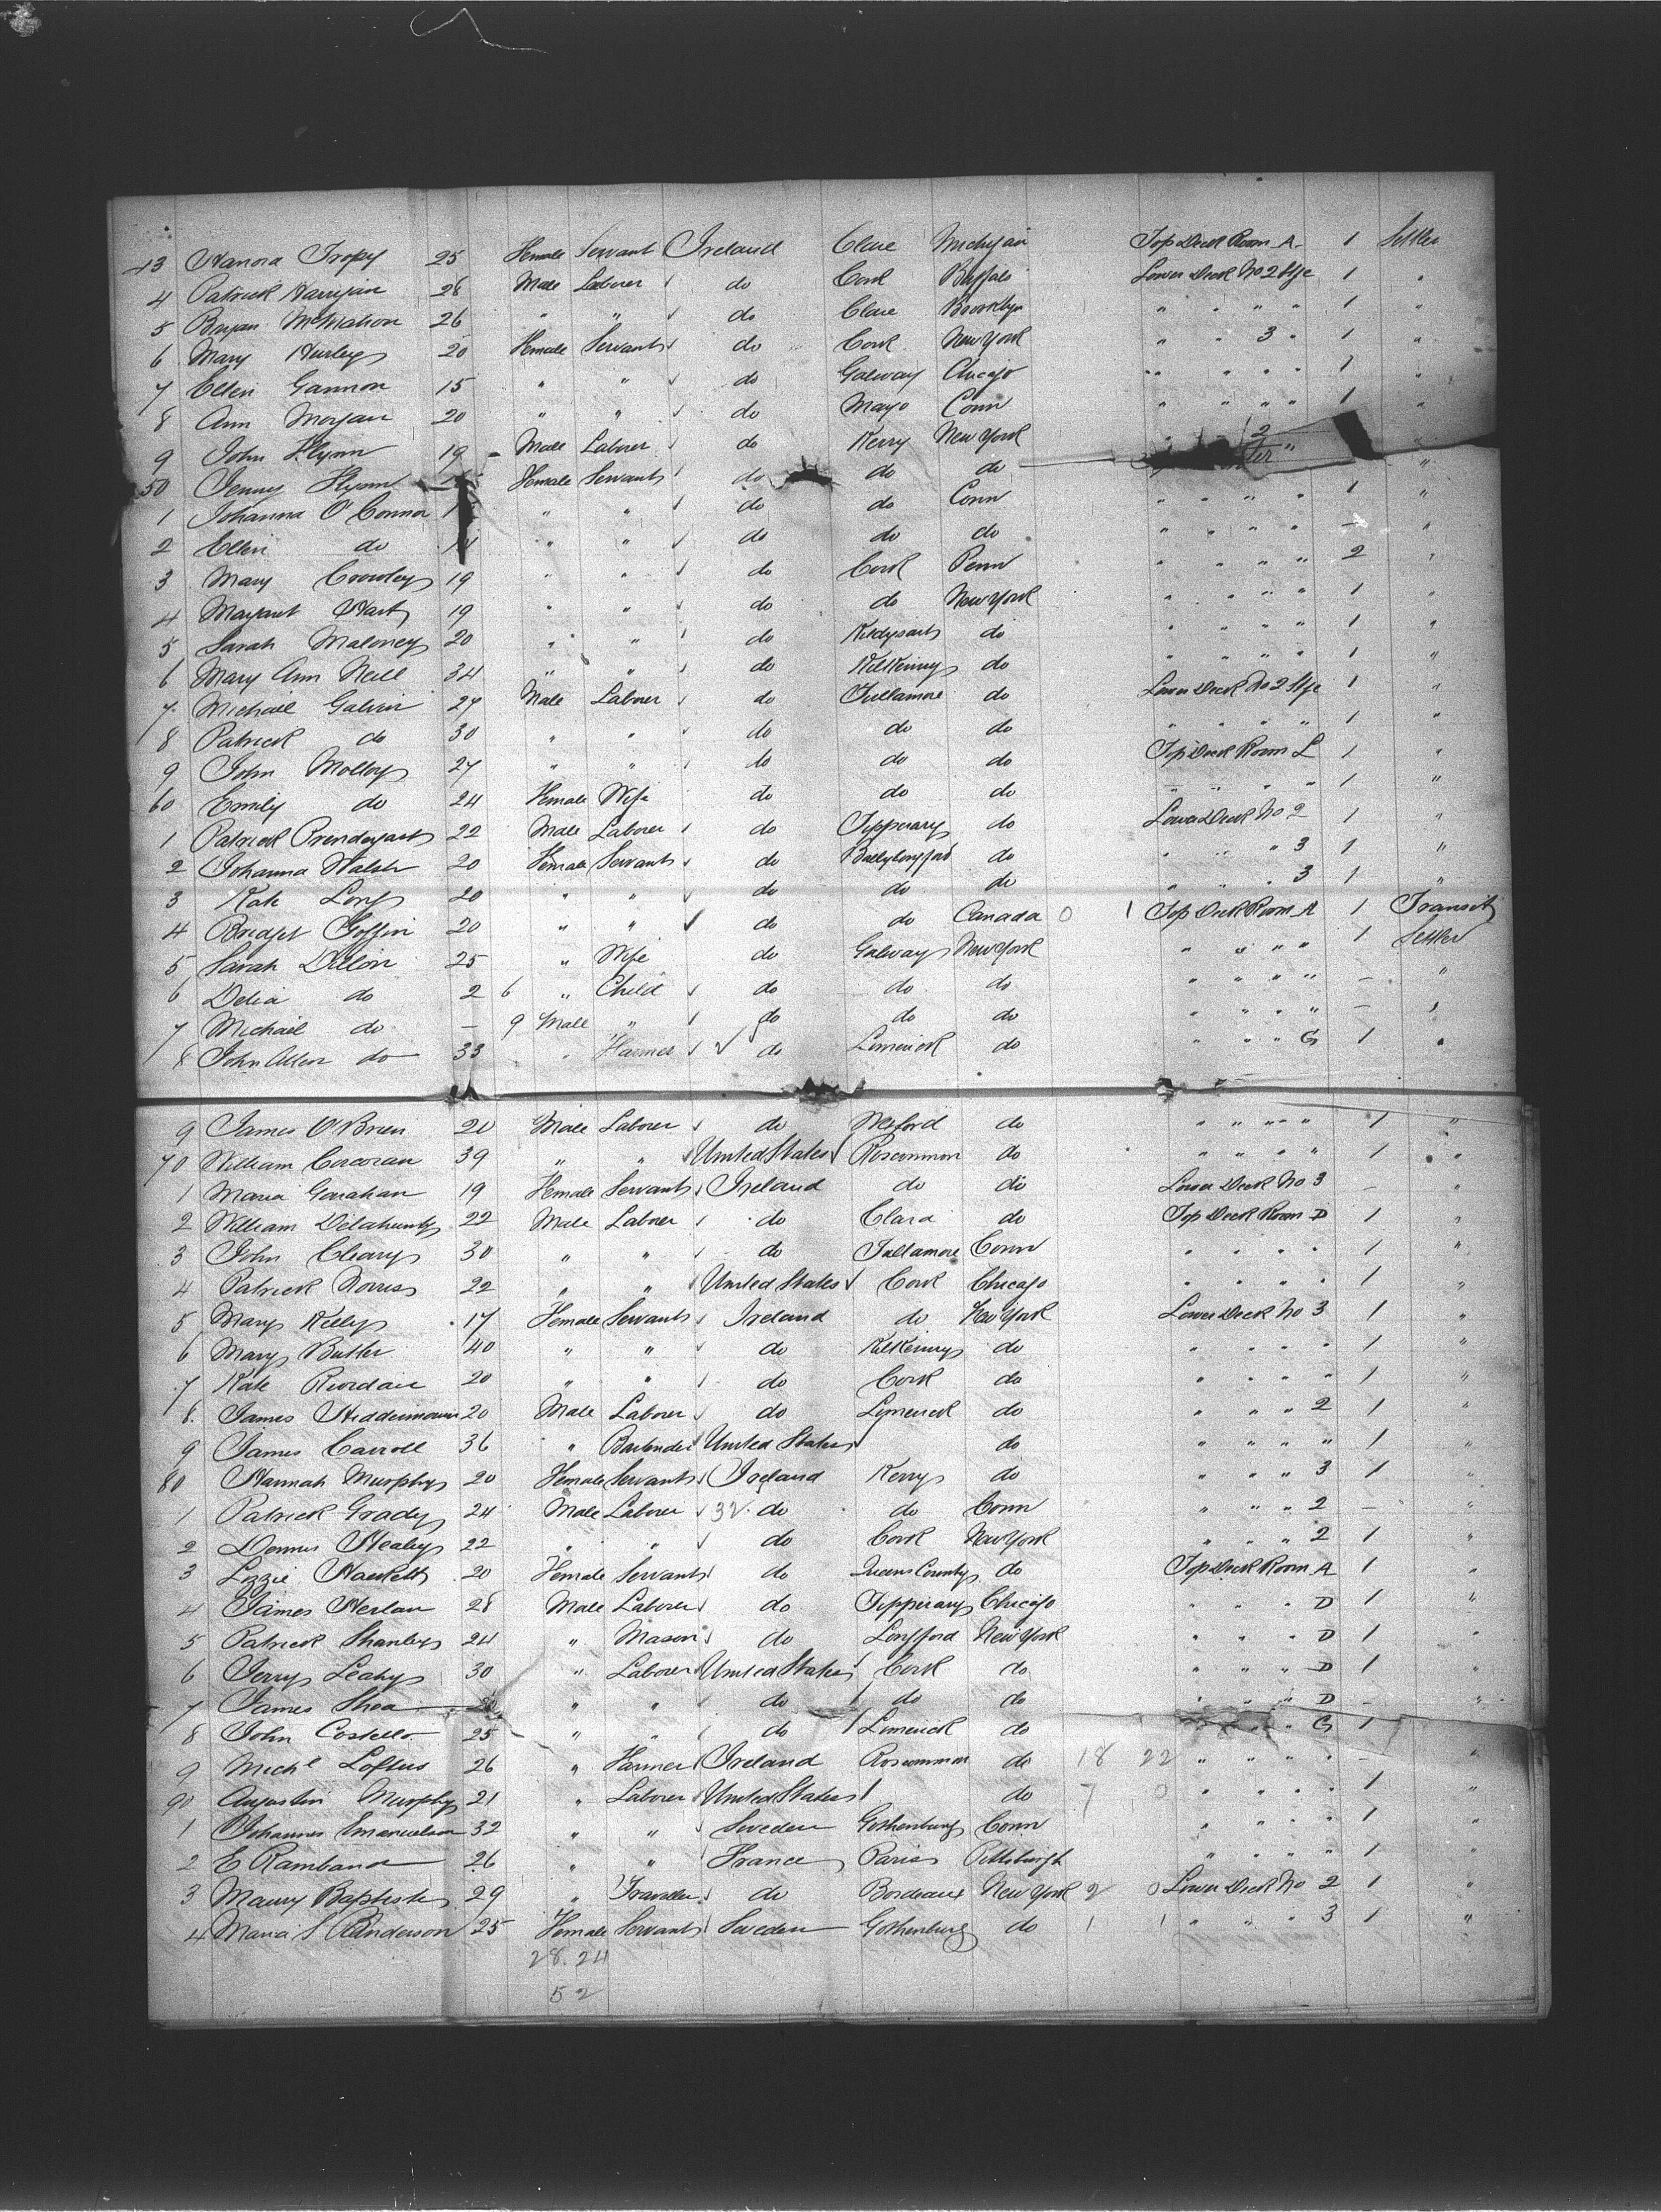 43 Hanora Tropy 25 Female Servant Ireland Clare Michigan Top Deck Room A 1 Settler
4 Patrick Harrigan 28 Male Laborer do Cork Buffalo Lower Deck No 2 Stge 1 "
5 Bryan McMahon 26 " " do Clare Brooklyn " " " " 1 "
6 Mary Hurley 20 Female Servant do Cork New York " " 3 " 1 "
7 Ellen Gannon 15 " " do Galway Chicago " " " " 1 "
8 Ann Morgan 20 " " do Mayo Conn " " " " 1 "
9 John Flynn 19 Male Laborer do Kerry New York 2
50 Jenny Flynn Female Servant do do do "
1 Johanna O'Connor " " do do Conn " " " " 1 "
2 Ellen do 14 " " do do do " " " " - "
3 Mary Crowley 19 " " do Cork Penn " " " " 2 "
4 Margaret Hart 19 " " do do New York " " " " 1 "
5 Sarah Maloney 20 " " do Kildysart do " " " " 1 "
6 Mary Ann Neill 34 " " do Kilkenny do " " " " 1 "
7 Michael Galvin 27 Male Laborer do Tullamore do Lower Deck No 2 Stge 1 "
8 Patrick do 30 " " do do do " " " " 1 "
9 John Molloy 27 " " do do do Top Deck Room L 1 "
60 Emily do 24 Female Wife do do do " " " " 1 "
1 Patrick Prendergast 22 Male Laborer do Tipperary do Lower Deck No 2 1 "
2 Johanna Walsh 20 Female Servant do Ballylongford do " " " 3 1 "
3 Kate Long 20 " " do do do " " " 3 1 "
4 Bridget Goffin 20 " " do do Canada 0 1 Top Deck Room A 1 Transit
5 Sarah Dillon 25 " Wife do Galway New York " " " " 1 Settler
6 Delia do 2 6 " Child do do do " " " " - "
7 Michael do - 9 Male " do do do " " " " - "
8 John Allen do 33 " Farmer do Limerick do " " " G 1 "
9 James O'Brien 20 Male Laborer do Wexford do " " " " 1 "
70 William Corcoran 39 " " United States Roscommon do " " " " 1 "
1 Maria Garahan 19 Female Servant Ireland do do Lower Deck No 3 - "
2 William Delahunty 22 Male Laborer do Clara do Top Deck Room D 1 "
3 John Cleary 30 " " do Tullamore Conn " " " " 1 "
4 Patrick Norris 22 " " United States Cork Chicago " " " " 1 "
5 Mary Kelly 17 Female Servant Ireland do New York Lower Deck No 3 1 "
6 Mary Butler 40 " " do Kilkenny do " " " " 1 "
7 Kate Riordan 20 " " do Cork do " " " " 1 "
8 James 20 Male Laborer do Limerick do " " " 2 1 "
9 James Carroll 36 " Bartender United States do " " " " 1 "
80 Hannah Murphy 20 Female Servant Ireland Kerry do " " " 3 1 "
1 Patrick Grady 24 Male Laborer 32 do do Conn " " " 2 - "
2 Dennis Healey 22 " " do Cork New York " " " 2 1 "
3 Lizzie Hackett 20 Female Servant do Queens County do Top Deck Room A 1 "
4 James Herlan 28 Male Laborer do Tipperary Chicago " " " D 1 "
5 Patrick Shanley 24 " Mason do Longford New York " " " D 1 "
6 Jerry Leahy 30 " Laborer United States Cork do " " " D 1 "
7 James Shea " " do do do " " " D - "
8 John Costello 25 " " do Limerick do " G 1
9 Michl Loftus 26 " Farmer Ireland Roscommon do 18 22 " " " " - "
90 Augustin Murphy 21 " Laborer United States do 7 0 " " " " 1 "
1 Johannes Emanuelson 32 " " Sweden Gothenburg Conn " " " " 1 "
2 E Rambana 26 " " France Paris Pittsburgh " " " " 1 "
3 Maury Baptiste 29 " Traveller do Bordeaux New York 2 0 Lower Deck No 2 1 "
4 Maria S Anderson 25 Female Servant Sweden Gothenburg do 1 1 " " " 3 1 "
28.24
52